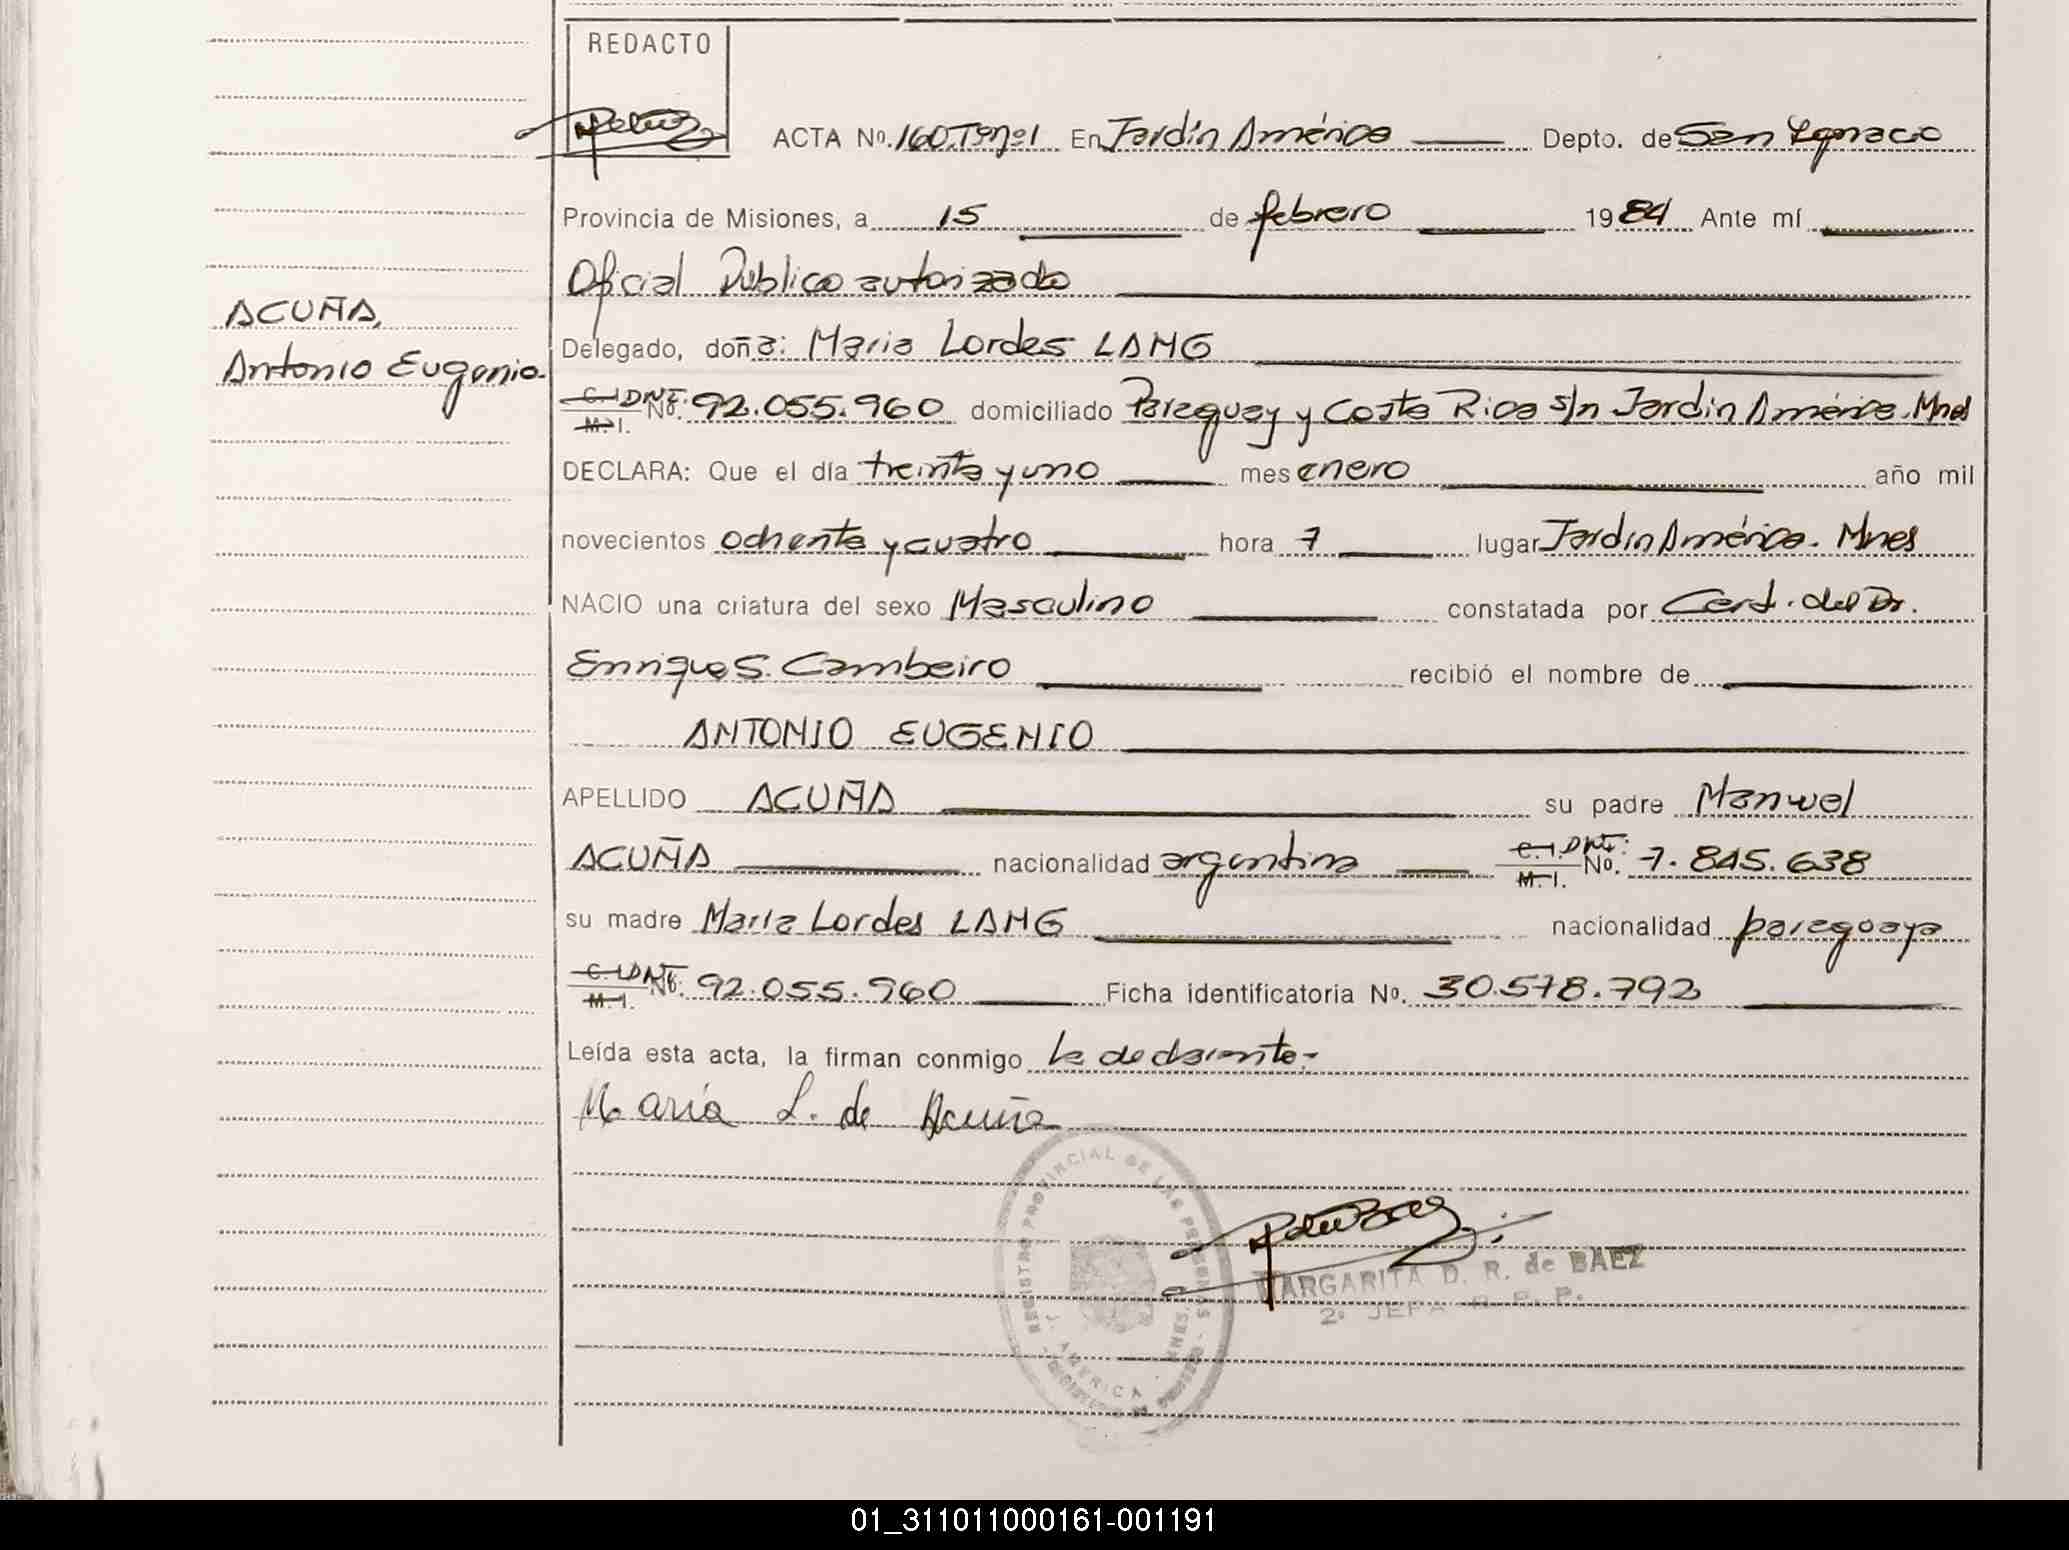 REDACTO
ACTA Nº. 160.Tº nº 1 En Jardín América Depto. de San Ignacio
Provincia de Misiones, a 15 de febrero 1984 Ante mí
Oficial Público autorizado
ACUÑA,
Antonio Eugenio.
Delegado, doña: Maria Lordes LANG
C.I. DNI: M.I. Nº. 92.055.960 domiciliado Paraguay y Costa Rica s/n Jardín América. Mnes
DECLARA: Que el día treinta y uno mes enero año mil
novecientos ochenta y cuatro hora 7 lugar Jardín América. Mnes
NACIO una criatura del sexo Masculino constatada por Cert. del Dr.
Enrique S. Cambeiro recibió el nombre de
ANTONIO EUGENIO
APELLIDO ACUÑA su padre Manuel
ACUÑA nacionalidad argentina C.I. DNI: M.I. Nº. 7.845.638
su madre María Lordes LANG nacionalidad paraguaya
C.I. DNI M.I. Nº. 92.055.960 Ficha identificatoria Nº. 30.578.792
Leída esta acta, la firman conmigo la declarante.-
María L. de Acuña
REGISTRO PROVINCIAL DE LAS PERSONAS
J. AMERICA - MNES.
MARGARITA D. R. de BAEZ
2º JEFA R. P. P.
01_311011000161-001191